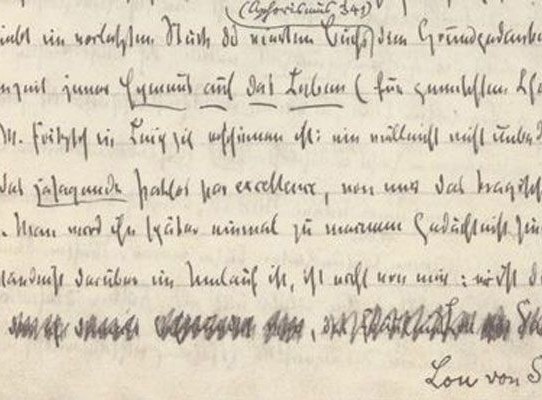 (Aphorismus 341)
giebt im vorletzten Stück des vierten Buchs den Grundgedanken
jener Hymnus auf das Leben (für gemischten Cho
W. Fritzsch in Leipzig erschienen ist: ein vielleicht nicht unbed
das jasagende Pathos par excellence, von mir das tragisch
. Man wird ihn später einmal zu meinem Gedächtniß sin
ständniß darüber im Umlauf ist, ist nicht von mir: er ist d
Lou von S